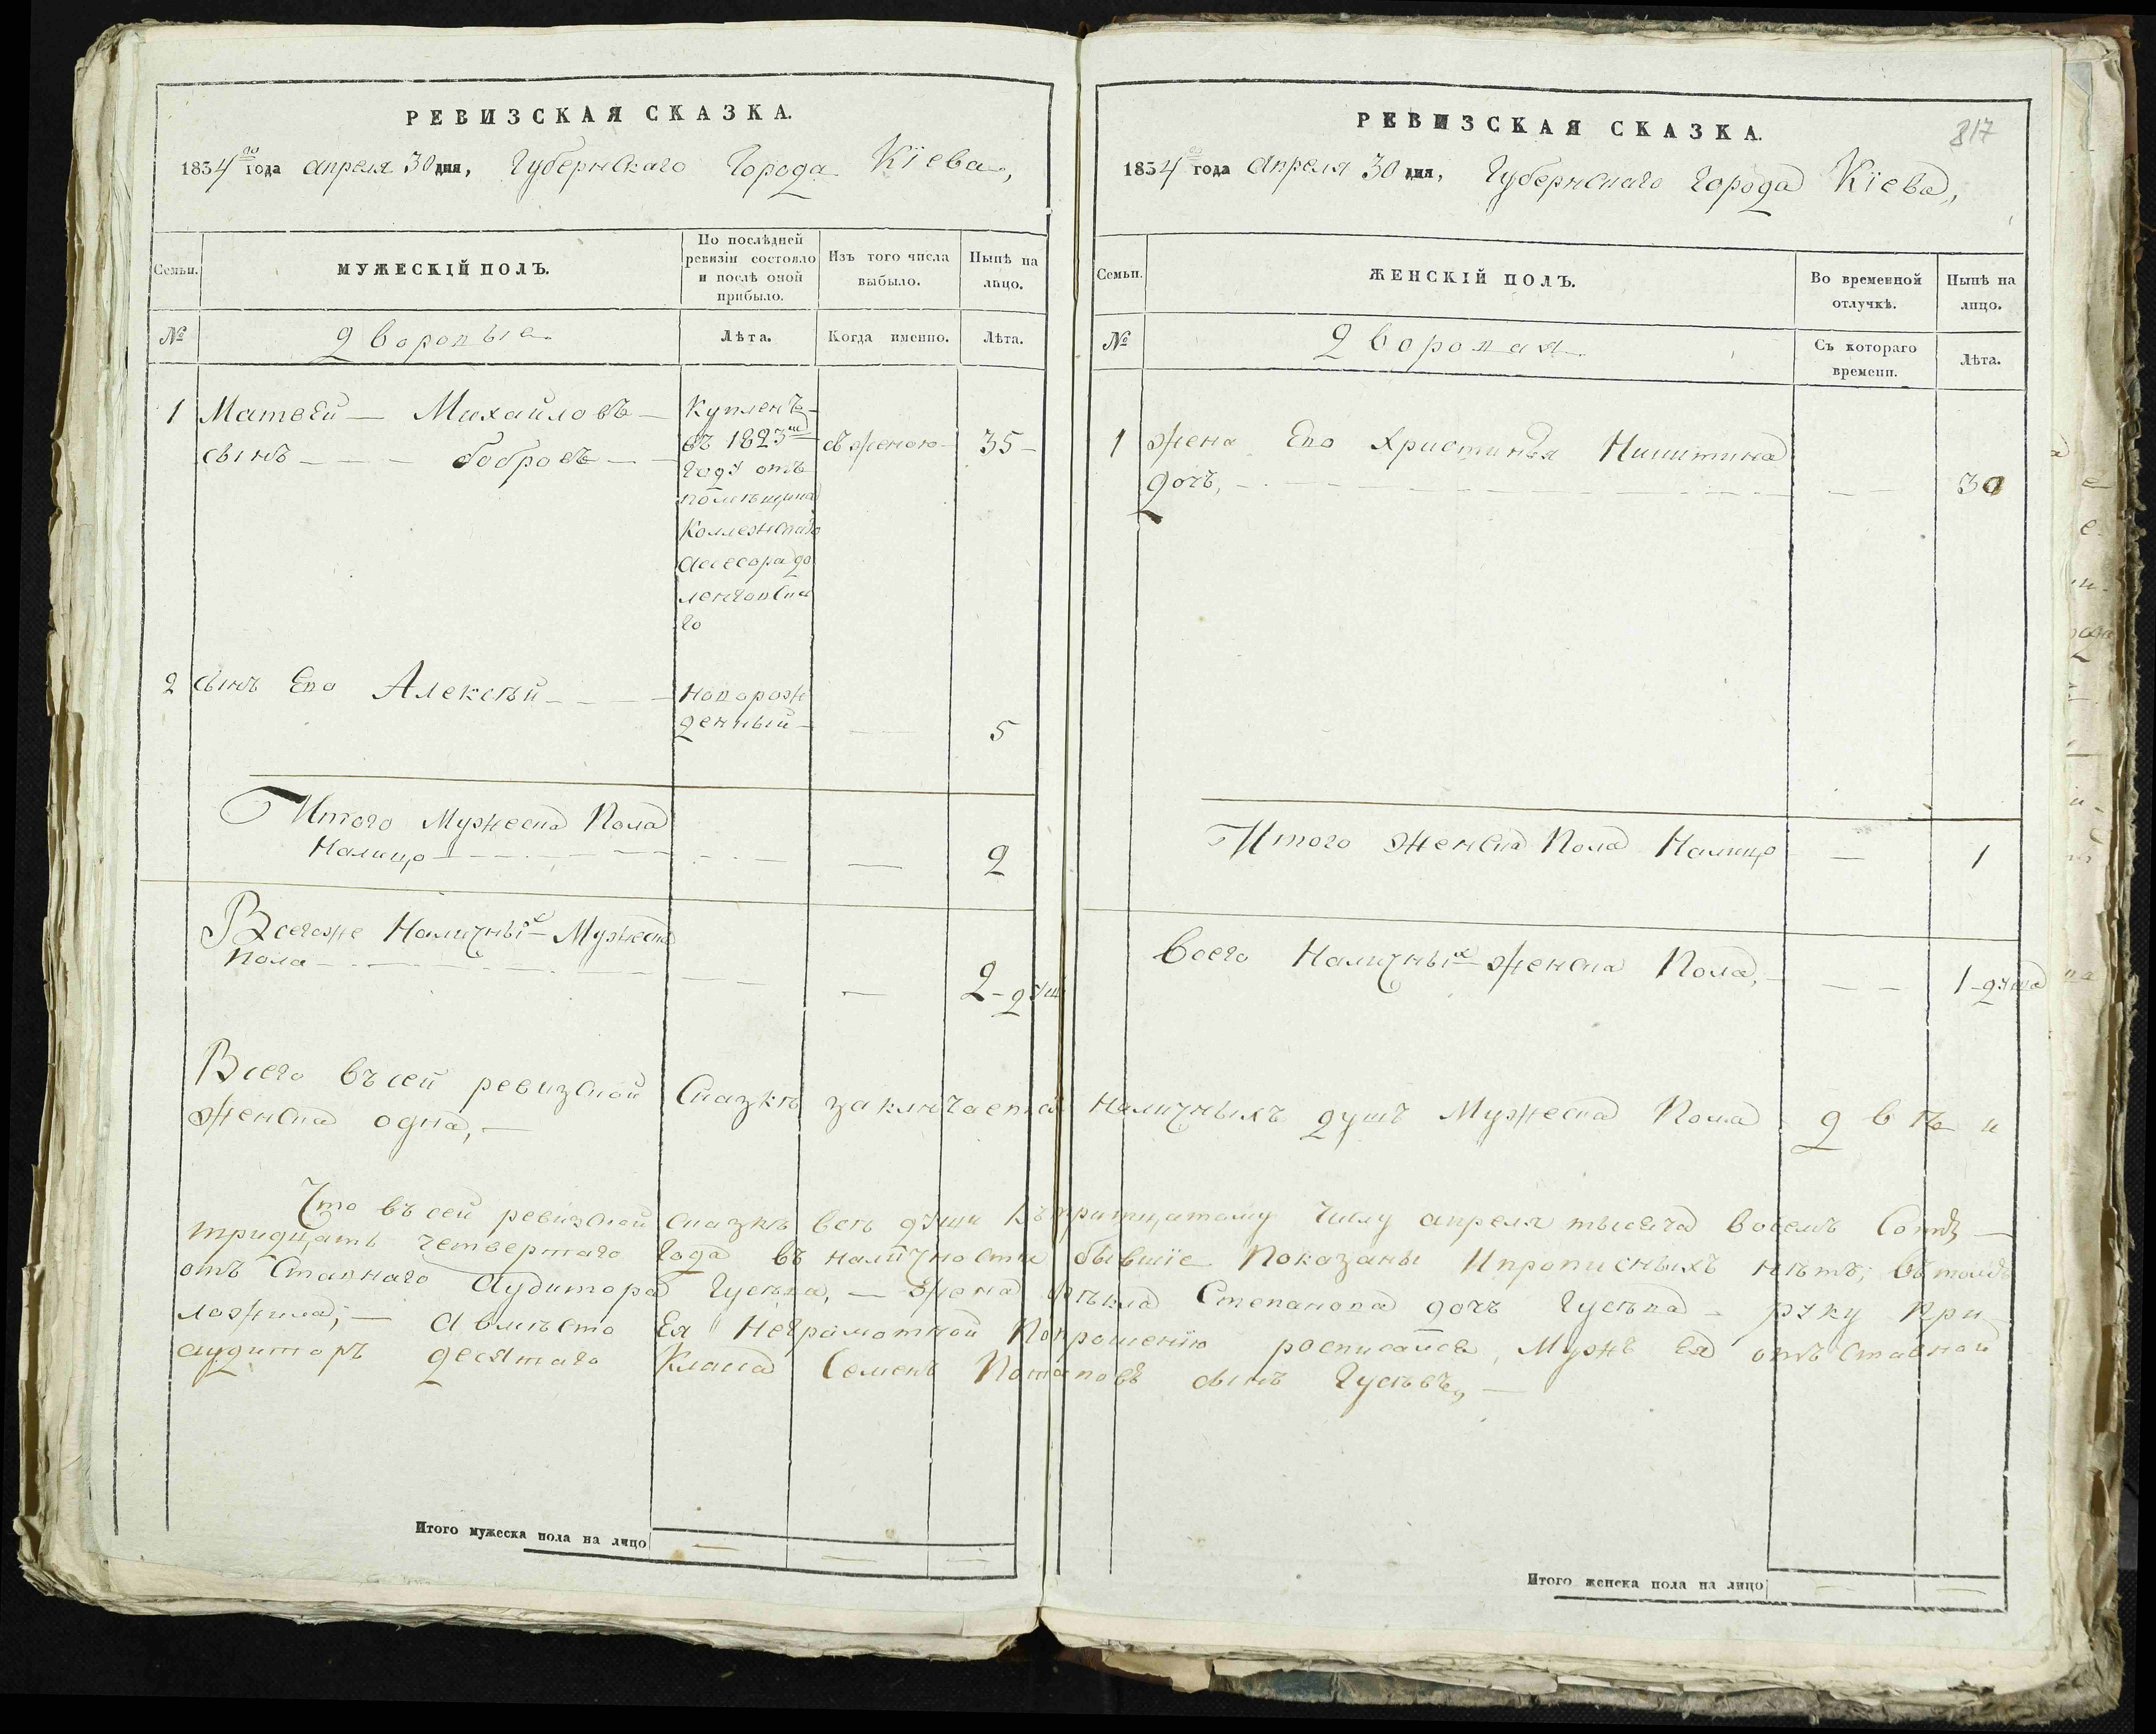 РЕВИЗСКАЯ СКАЗКА.
1834го года апреля 30 дня, Губернскаго Города Кіева,
Семьи.
МУЖЕСКІЙ ПОЛЪ.
По послѣдней ревизіи состояло и послѣ оной прибыло.
Изъ того числа выбыло.
Нынѣ на лицо.
№
дворовые
Лѣта.
Когда именно.
Лѣта.
1 Матвей — Михайловъ —
сынъ — — — бобровъ —
Купленъ
въ 1823м
году отъ
помѣщика
Коллежскаго
Асесора до
ленговска
го
съ женою
35
2 сынъ Ево Алексѣй
новорож
денный
5
Итого Мужеска Пола
Налицо
2
Всегоже Наличныхъ Мужеска
Пола
2 - душ
РЕВИЗСКАЯ СКАЗКА.
817
1834го года Апреля 30 дня, Губернскаго Города Кіева,
Семьи.
ЖЕНСКІЙ ПОЛЪ.
Во временной отлучкѣ.
Нынѣ на лицо.
№
дворовая
Съ котораго времени.
Лѣта.
1 жена Ево Христинья Никитина
дочь,
30
Итого женска Пола Налицо
1
Всего Наличныхъ женска Пола,
1 - душа
Всего въ сей ревизской Сказкѣ заключается наличныхъ душъ Мужеска Пола двѣ и
женска одна, —
Что въ сей ревизской сказкѣ всѣ души Къ тритцатому числу апреля тысяча восемь Сотъ
тридцать четвертаго Года въ наличности бывшіе Показаны И прописныхъ нѣтъ; въ томъ
отъ Ставнаго Аудитора Гусѣва, — жена Ѳѣкла Степанова дочь Гусѣва — руку При
ложила; — А вмѣсто Ея Неграмотной По прошенію росписался Мужъ Ея отъ Ставной
аудиторъ десятаго Класса Семенъ Потаповъ сынъ Гусѣвъ, —
Итого мужеска пола на лицо
Итого женска пола на лицо